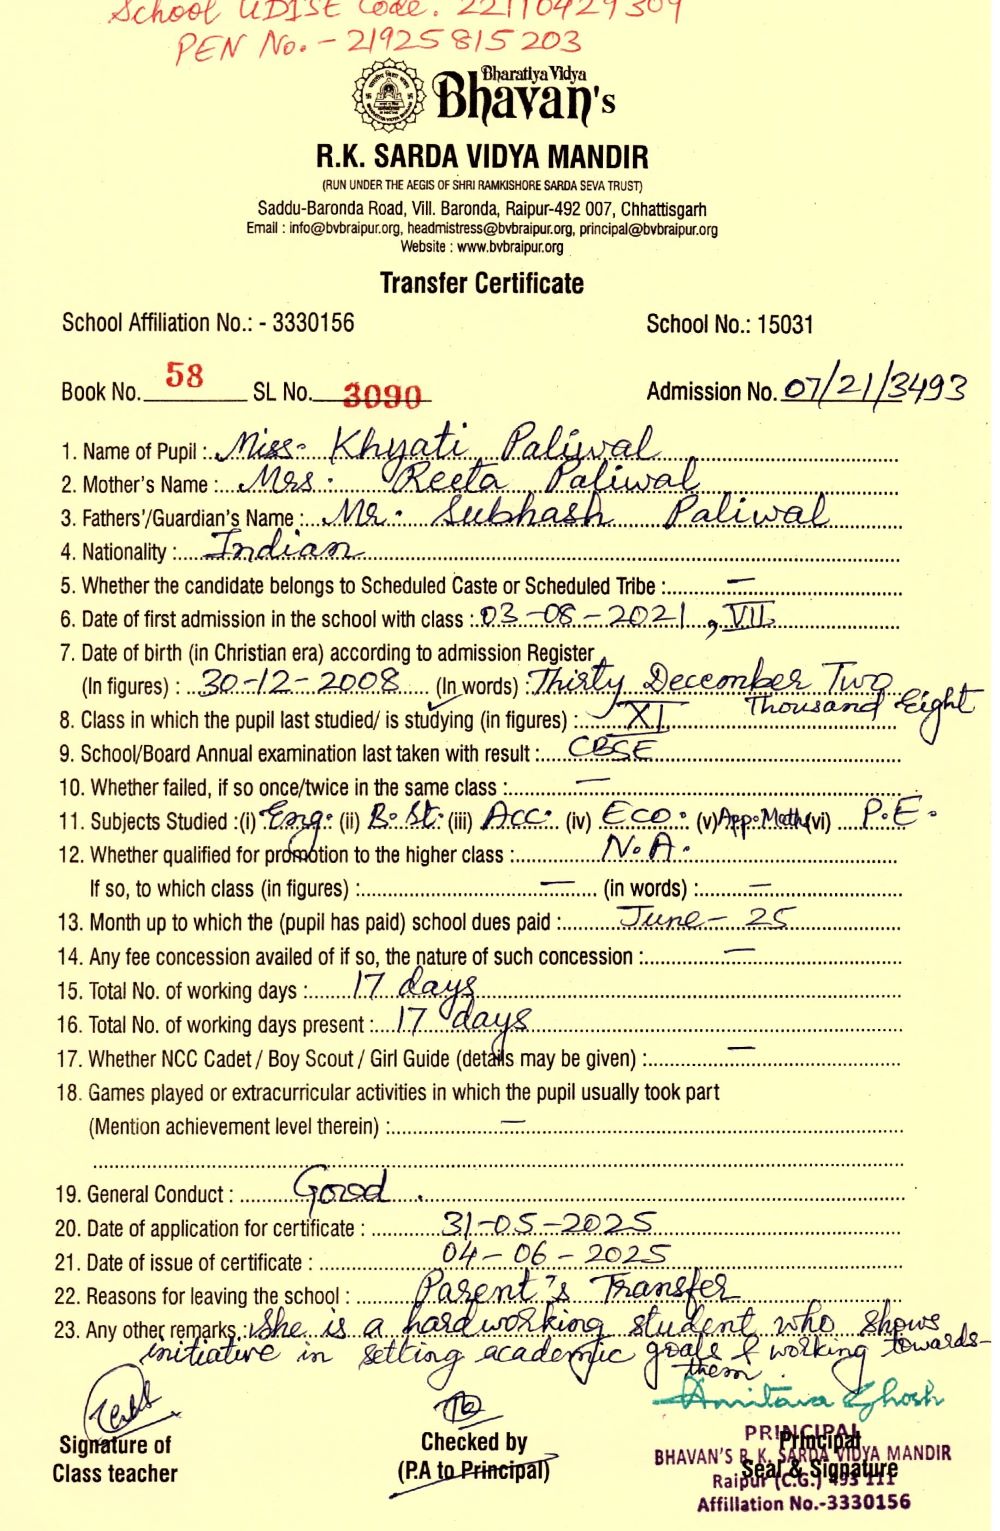 School UDISE Code. 22110429309
PEN No. - 21925815203
Bharatiya Vidya
Bhavan's
R.K. SARDA VIDYA MANDIR
(RUN UNDER THE AEGIS OF SHRI RAMKISHORE SARDA SEVA TRUST)
Saddu-Baronda Road, Vill. Baronda, Raipur-492 007, Chhattisgarh
Email : info@bvbraipur.org, headmistress@bvbraipur.org, principal@bvbraipur.org
Website : www.bvbraipur.org
Transfer Certificate
School Affiliation No.: - 3330156 School No.: 15031
Book No. 58 SL No. 3090 Admission No. 07/21/3493
1. Name of Pupil : Miss. Khyati Paliwal
2. Mother's Name : Mrs. Reeta Paliwal
3. Fathers'/Guardian's Name : Mr. Subhash Paliwal
4. Nationality : Indian
5. Whether the candidate belongs to Scheduled Caste or Scheduled Tribe : —
6. Date of first admission in the school with class : 03-08-2021, VII
7. Date of birth (in Christian era) according to admission Register
(In figures) : 30-12-2008 (In words) : Thirty December Two
Thousand Eight
8. Class in which the pupil last studied/ is studying (in figures) : XI
9. School/Board Annual examination last taken with result : CBSE
10. Whether failed, if so once/twice in the same class : —
11. Subjects Studied :(i) Eng. (ii) B.St. (iii) Acc. (iv) Eco. (v) App.Math (vi) P.E.
12. Whether qualified for promotion to the higher class : N.A.
If so, to which class (in figures) : — (in words) : —
13. Month up to which the (pupil has paid) school dues paid : June - 25
14. Any fee concession availed of if so, the nature of such concession : —
15. Total No. of working days : 17 days
16. Total No. of working days present : 17 days
17. Whether NCC Cadet / Boy Scout / Girl Guide (details may be given) : —
18. Games played or extracurricular activities in which the pupil usually took part
(Mention achievement level therein) : —
19. General Conduct : Good.
20. Date of application for certificate : 31-05-2025
21. Date of issue of certificate : 04-06-2025
22. Reasons for leaving the school : Parent's Transfer
23. Any other remarks : She is a hardworking student who shows
initiative in setting academic goals & working towards
them.
Amitava Ghosh
Signature of
Class teacher
Checked by
(P.A to Principal)
Principal
Seal & Signature
PRINCIPAL
BHAVAN'S R. K. SARDA VIDYA MANDIR
Raipur (C.G.) 493 111
Affiliation No.-3330156